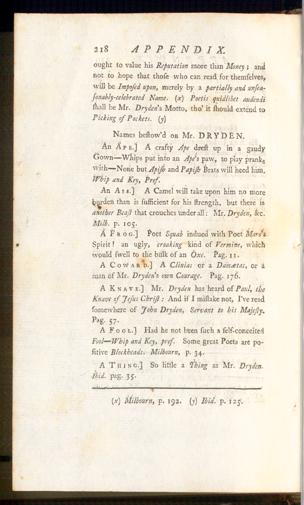 218 APPENDIX.
ought to value his Reputation more than Money; and
not to hope that those who can read for themselves,
will be Imposed upon, merely by a partially and unsea-
sonably-celebrated Name. (x) Poetis quidlibet audendi
shall be Mr. Dryden's Motto, tho' it should extend to
Picking of Pockets. (y)
Names bestow'd on Mr. DRYDEN.
An APE.] A crafty Ape drest up in a gaudy
Gown—Whips put into an Ape's paw, to play pranks
with—None but Apish and Papish Brats will heed him.
Whip and Key, Pref.
An Ass.] A Camel will take upon him no more
burden than is sufficient for his strength, but there is
another Beast that crouches under all: Mr. Dryden, &c.
Milb. p. 105.
A FROG.] Poet Squab indued with Poet Maro's
Spirit! an ugly, croaking kind of Vermine, which
would swell to the bulk of an Oxe. Pag. 11.
A COWARD.] A Clinias or a Damætas, or a
man of Mr. Dryden's own Courage. Pag. 176.
A KNAVE.] Mr. Dryden has heard of Paul, the
Knave of Jesus Christ: And if I mistake not, I've read
somewhere of John Dryden, Servant to his Majesty.
Pag. 57.
A FOOL.] Had he not been such a self-conceited
Fool—Whip and Key, pref. Some great Poets are po-
sitive Blockheads. Milbourn, p. 34.
A THING.] So little a Thing as Mr. Dryden.
Ibid. pag. 35.
(x) Milbourn, p. 192. (y) Ibid. p. 125.